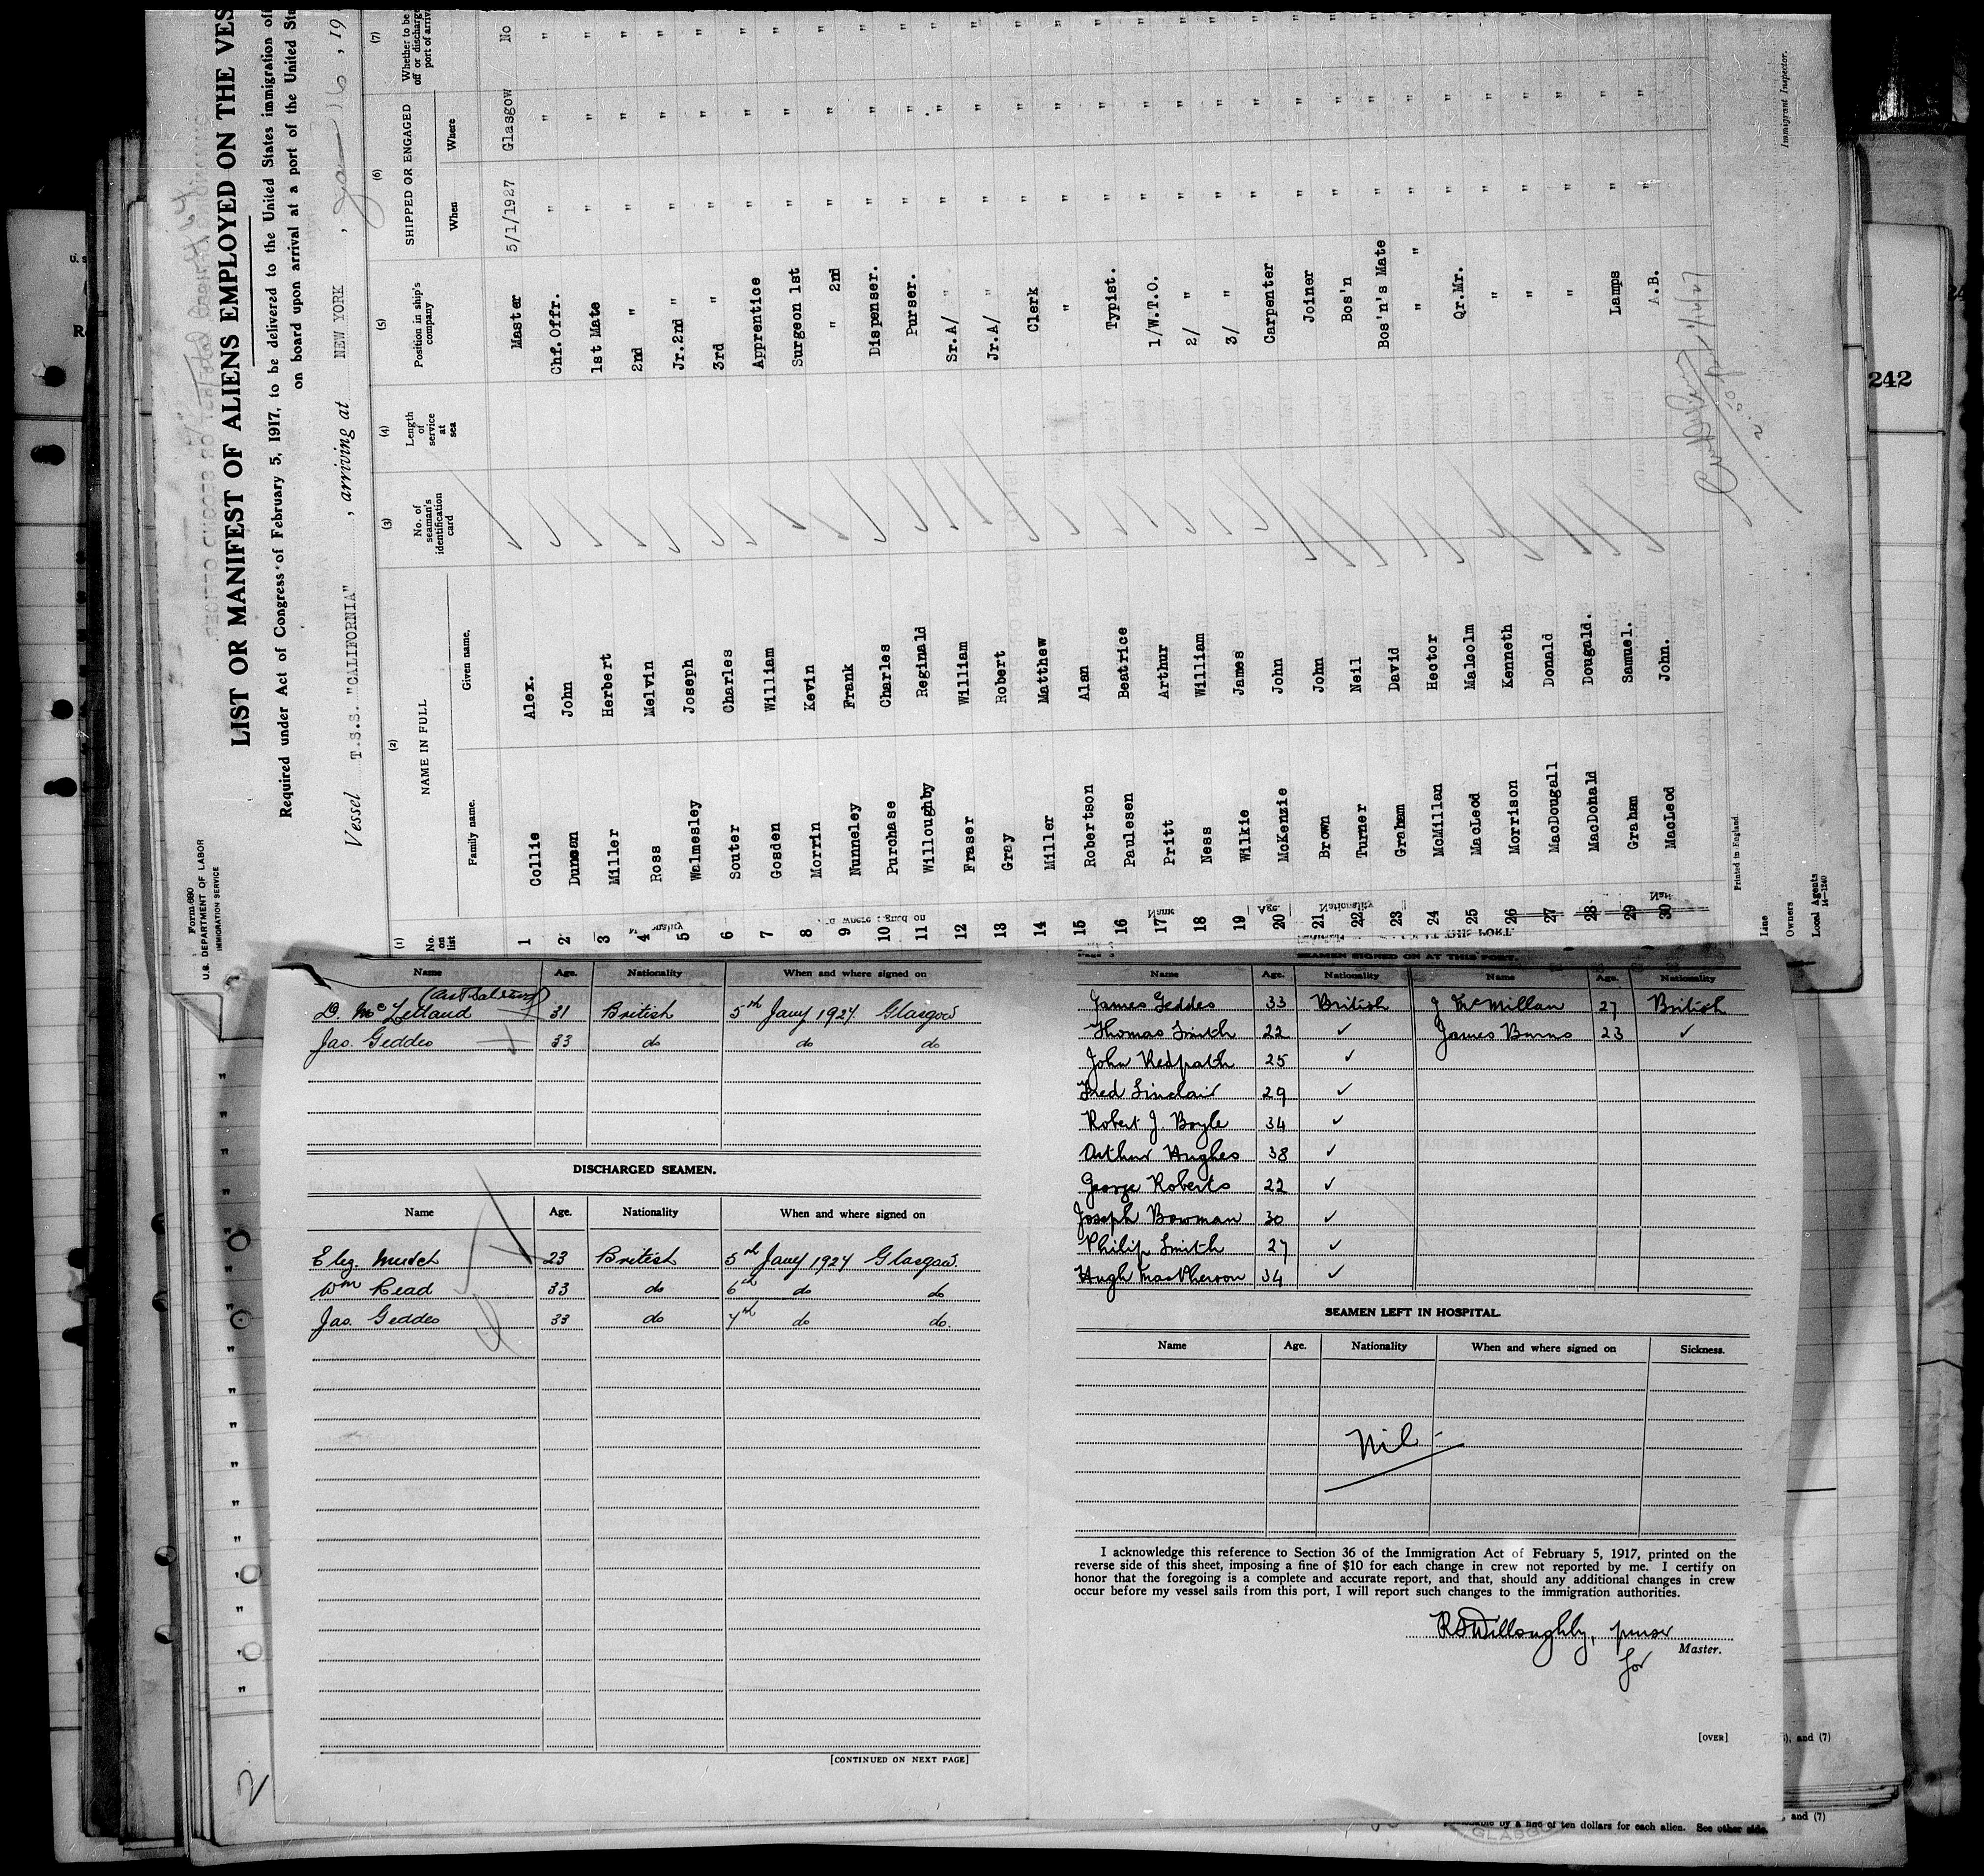 Form 680
U.S. DEPARTMENT OF LABOR
IMMIGRATION SERVICE
LIST OR MANIFEST OF ALIENS EMPLOYED ON THE VES
Required under Act of Congress of February 5, 1917, to be delivered to the United States immigration of
on board upon arrival at a port of the United Sta
Vessel T.S.S. "CALIFORNIA", arriving at NEW YORK, Jan 16, 19
(1) (2) (3) (4) (5) (6) (7)
No. on list NAME IN FULL No. of seaman's identification card Length of service at sea Position in ship's company SHIPPED OR ENGAGED Whether to be off or discharge port of arriva
Family name. Given name. When Where
1 Collie Alex. Master 5/1/1927 Glasgow No
2 Duncan John Chf.Offr. " " "
3 Miller Herbert 1st Mate " " "
4 Ross Melvin 2nd " " " "
5 Walmesley Joseph Jr.2nd " " " "
6 Souter Charles 3rd " " " "
7 Gosden William Apprentice " " "
8 Morrin Kevin Surgeon 1st " " "
9 Nunneley Frank " 2nd " " "
10 Purchase Charles Dispenser. " " "
11 Willoughby Reginald Purser. " " "
12 Fraser William Sr.A/ " " " "
13 Gray Robert Jr.A/ " " " "
14 Miller Matthew Clerk " " "
15 Robertson Alan " " " "
16 Paulesen Beatrice Typist. " " "
17 Pritt Arthur 1/W.T.O. " " "
18 Ness William 2/ " " " "
19 Wilkie James 3/ " " " "
20 McKenzie John Carpenter " " "
21 Brown John Joiner " " "
22 Turner Neil Bos'n " " "
23 Graham David Bos'n's Mate " " "
24 McMillan Hector " " " " "
25 MacLeod Malcolm Qr.Mr. " " "
26 Morrison Kenneth " " " "
27 MacDougall Donald " " " "
28 MacDonald Dougald. " " " "
29 Graham Samuel. Lamps " " "
30 MacLeod John. A.B. " " "
Immigrant Inspector.
Printed in England.
Line
Owners
Local Agents
14-1240
242
Name Age. Nationality When and where signed on
D. McLelland 31 British 5th Jany 1927 Glasgow
Jas. Geddes 33 do do do
DISCHARGED SEAMEN.
Name Age. Nationality When and where signed on
Eliz. Mutch 23 British 5th Jany 1927 Glasgow.
Wm Read 33 do 6th do do
Jas. Geddes 33 do 7th do do.
[CONTINUED ON NEXT PAGE]
2
SEAMEN SIGNED ON AT THIS PORT.
Name Age. Nationality Name Age. Nationality
James Geddes 33 British J McMillan 27 British
Thomas Smith 22 ✓ James Burns 23 ✓
John Redpath 25 ✓
Fred Sinclair 29 ✓
Robert J. Boyle 34 ✓
Arthur Hughes 38 ✓
George Roberts 22 ✓
Joseph Bowman 30 ✓
Philip Smith 27 ✓
Hugh MacPherson 34 ✓
SEAMEN LEFT IN HOSPITAL.
Name Age. Nationality When and where signed on Sickness.
Nil
I acknowledge this reference to Section 36 of the Immigration Act of February 5, 1917, printed on the
reverse side of this sheet, imposing a fine of $10 for each change in crew not reported by me. I certify on
honor that the foregoing is a complete and accurate report, and that, should any additional changes in crew
occur before my vessel sails from this port, I will report such changes to the immigration authorities.
RSWilloughby, purser
for Master.
[OVER]
, and (7)
and (7)
by a fine of ten dollars for each alien. See other side.
GLASGO